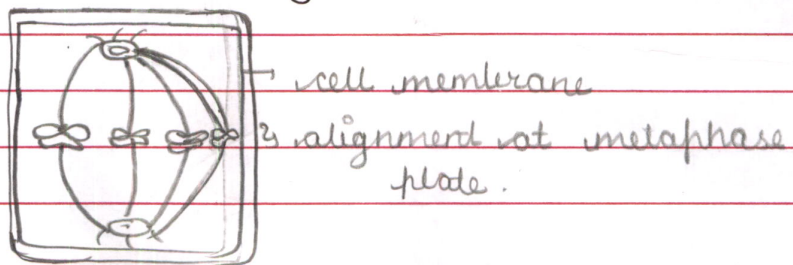 cell membrane
alignment at metaphase
plate.